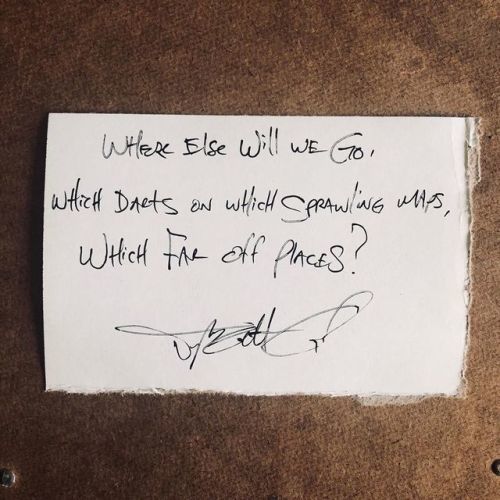 Where Else Will we Go,
Which Darts on which Sprawling maps,
Which Far off Places?